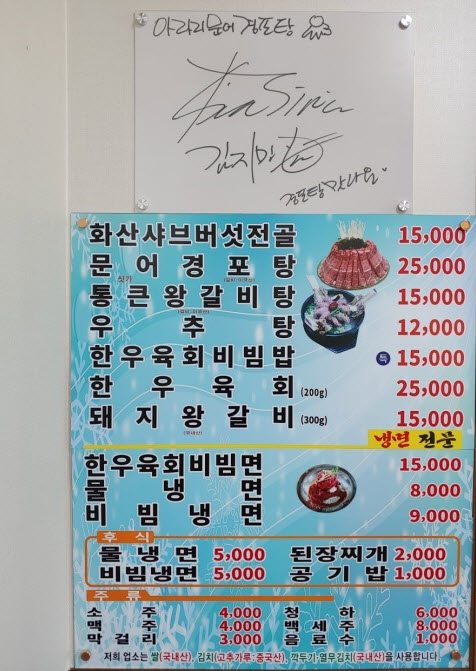 아라리문어경포탕
김지민
경포탕 맛나요
화산샤브버섯전골 15,000
문어경포탕 25,000
통큰왕갈비탕 15,000
우추탕 12,000
한우육회비빔밥 특 15,000
한우육회 (200g) 25,000
돼지왕갈비 (300g) 15,000
(국내산)
냉면 전문
한우육회비빔면 15,000
물냉면 8,000
비빔냉면 9,000
후식
물냉면 5,000 된장찌개 2,000
비빔냉면 5,000 공기밥 1,000
주류
소주 4,000 청하 6,000
맥주 4,000 백세주 8,000
막걸리 3,000 음료수 1,000
저희 업소는 쌀(국내산), 김치(고추가루:중국산), 깍두기·열무김치(국내산)을 사용합니다.